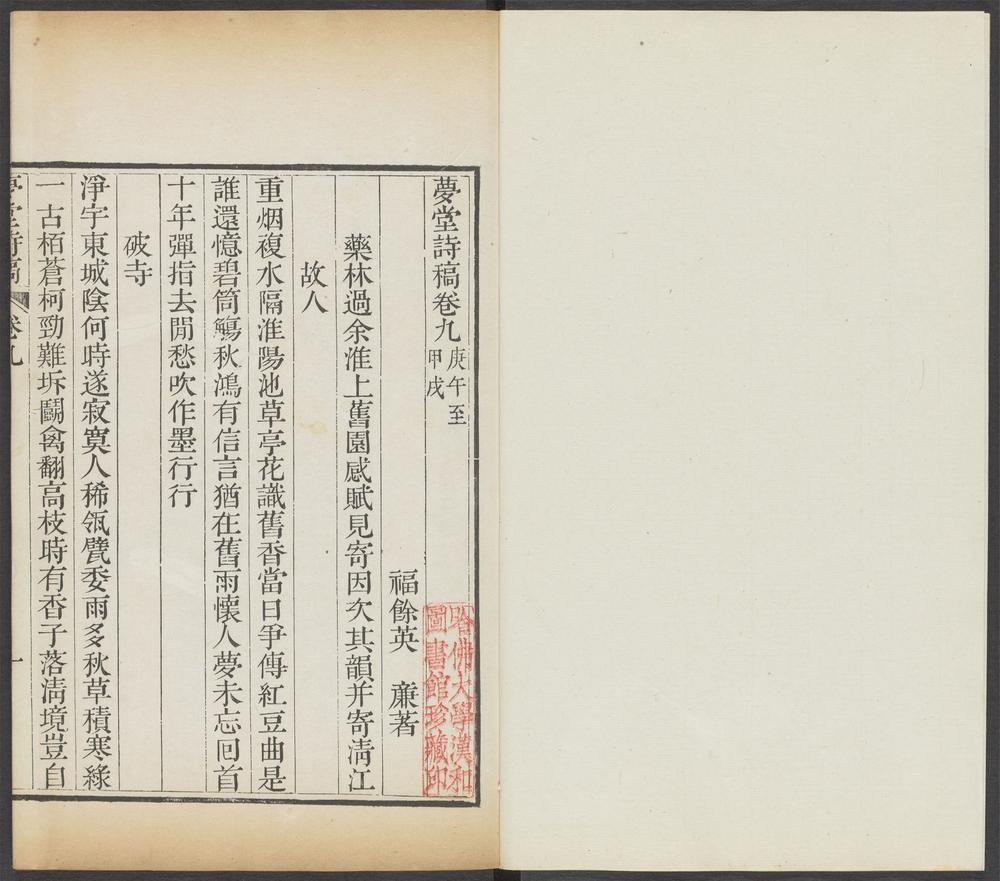 夢堂詩稿卷九
庚午至
甲戌
福餘英 廉著
哈佛大學漢和
圖書館珍藏印
藥林過余淮上舊園感賦見寄因次其韻并寄淸江
故人
重烟複水隔淮陽池草亭花識舊香當日爭傳紅豆曲是
誰還憶碧筒觴秋鴻有信言猶在舊雨懷人夢未忘回首
十年彈指去閒愁吹作墨行行
破寺
淨宇東城陰何時遂寂寞人稀瓴甓委雨多秋草積寒綠
一古栢蒼柯勁難坼鬬禽翻高枝時有香子落淸境豈自
夢堂詩稿 卷九 一